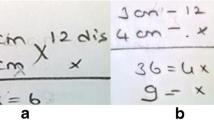 cm × 12 dis
cm x
= 6
a
3 cm - 12
4 cm - . x
36 = 4x
9 = x
b